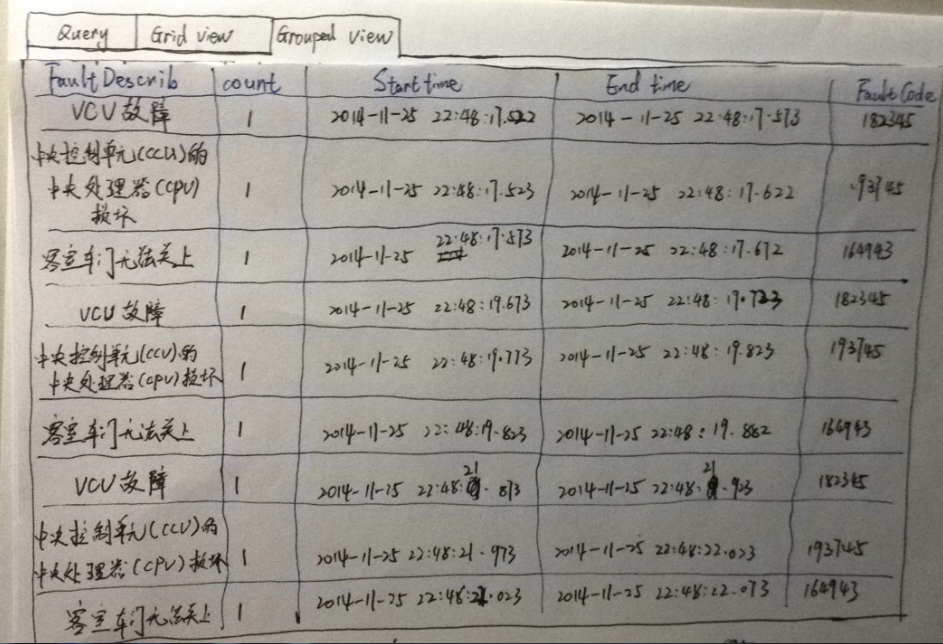 Query Grid view Grouped view
Fault Describ count Start time End time Fault Code
VCU故障 1 2014-11-25 22:48:17.522 2014-11-25 22:48:17.573 182345
中央控制单元(CCU)的
中央处理器(CPU) 1 2014-11-25 22:48:17.523 2014-11-25 22:48:17.622 193745
损坏
22:48:17.573
客室车门无法关上 1 2014-11-25 2014-11-25 22:48:17.672 164943
VCU故障 1 2014-11-25 22:48:19.673 2014-11-25 22:48:19.723 182345
中央控制单元(CCU)的 2014-11-25 22:48:19.773 2014-11-25 22:48:19.823 193745
中央处理器(CPU)损坏 1
客室车门无法关上 1 2014-11-25 22:48:19.823 2014-11-25 22:48:19.882 164943
VCU故障 1 2014-11-25 22:48:21.873 2014-11-25 22:48:21.923 182345
中央控制单元(CCU)的
中央处理器(CPU)损坏 1 2014-11-25 22:48:21.973 2014-11-25 22:48:22.023 193745
客室车门无法关上 1 2014-11-25 22:48:22.023 2014-11-25 22:48:22.073 164943